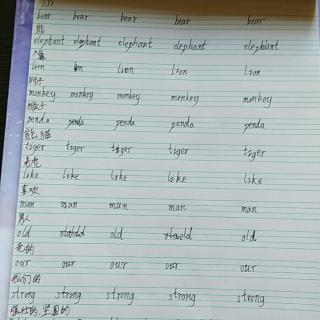 bear bear bear bear bear
熊
elephant elephant elephant elephant elephant
lion lion lion lion
狮子
monkey monkey monkey monkey monkey
猴子
penda penda penda penda penda
熊猫
tiger tiger tiger tiger tiger
老虎
like like like like like
喜欢
man man man man man
男人
old old old
老的
our our our our our
我们的
strong strong strong strong strong
强壮的,坚固的